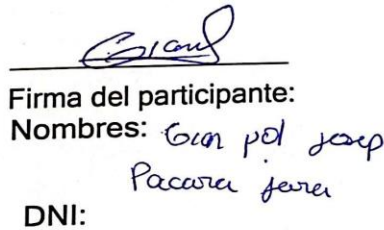 Firma del participante:
Nombres: Gian pol josep
Pacara jara
DNI: